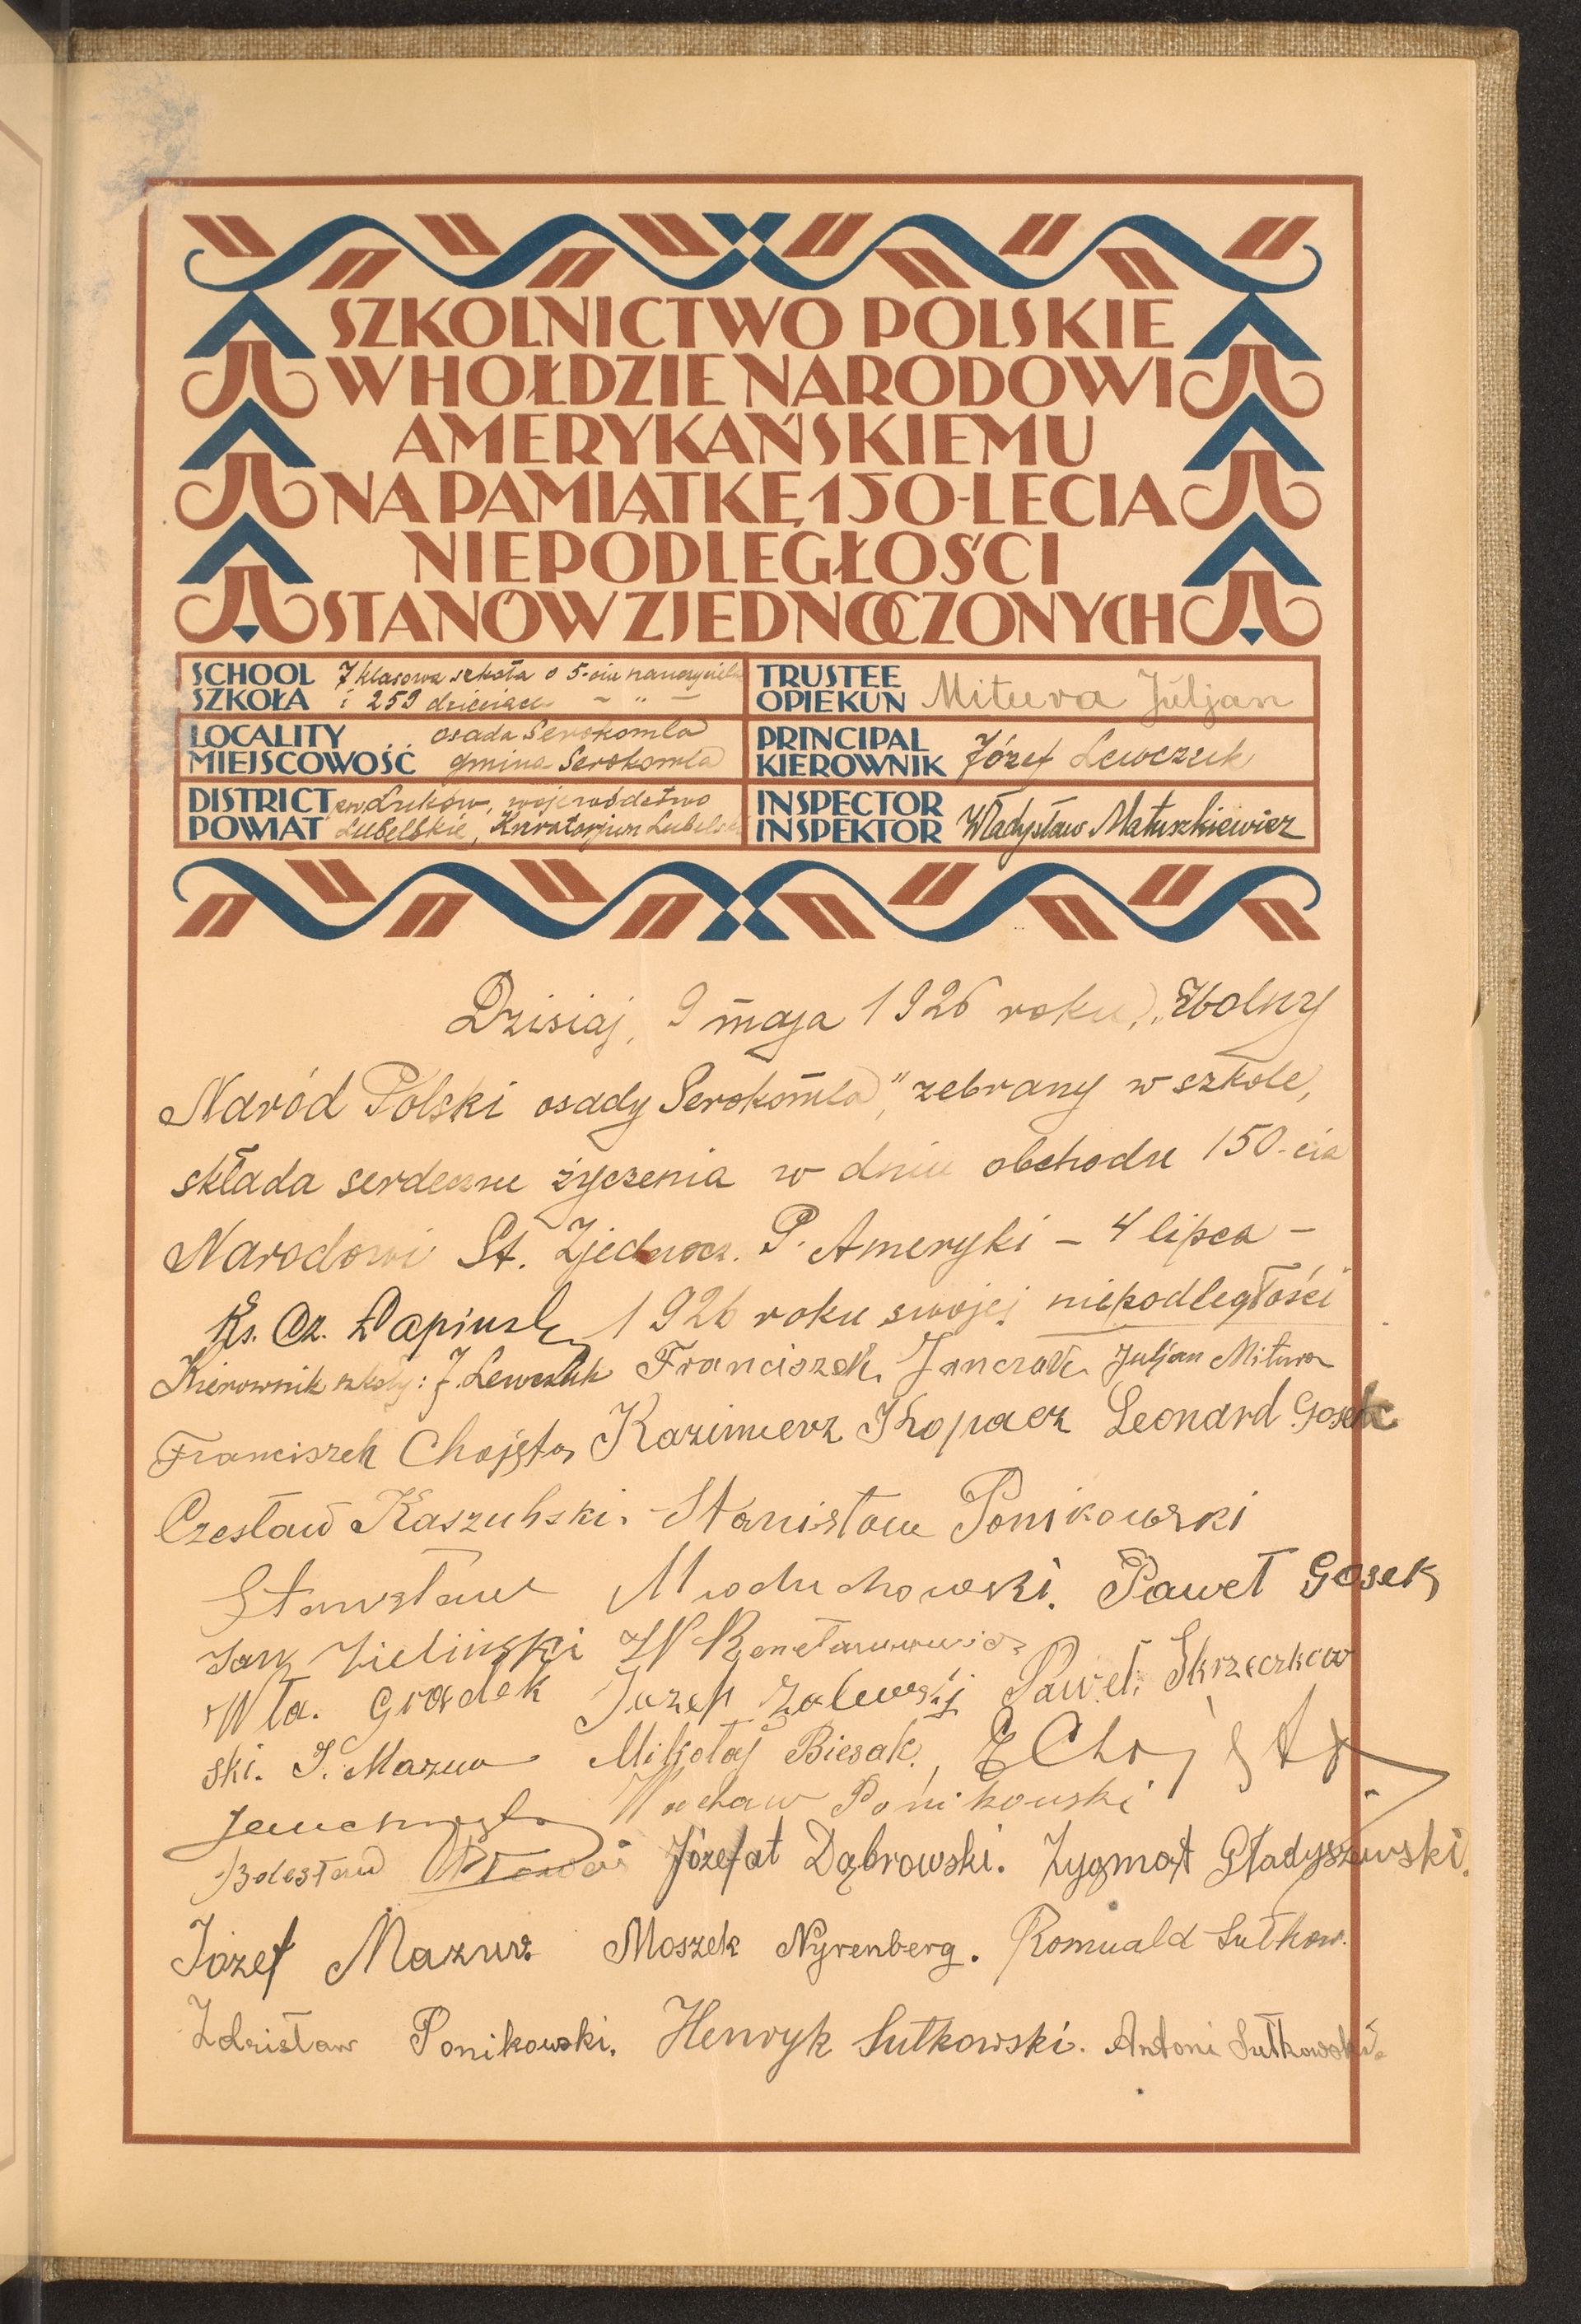 SZKOLNICTWO POLSKIE
W HOŁDZIE NARODOWI
AMERYKAŃSKIEMU
NA PAMIĄTKĘ 150-LECIA
NIEPODLEGŁOŚCI
STANÓW ZJEDNOCZONYCH
SCHOOL
SZKOŁA
7 klasowa szkoła o 5-ciu nauczyciel
i 259 dzieciach - " -
TRUSTEE
OPIEKUN
Mitura Juljan
LOCALITY
MIEJSCOWOŚĆ
osada Serokomla
gmina Serokomla
PRINCIPAL
KIEROWNIK
Józef Lewczuk
DISTRICT
POWIAT
Łuków, województwo
Lubelskie, Kuratorjum Lubelsk
INSPECTOR
INSPEKTOR
Władysław Matuszkiewicz
Dzisiaj, 9 maja 1926 roku, „Wolny
Naród Polski osady Serokomla", zebrany w szkole,
składa serdeczne życzenia w dniu obchodu 150-cia
Narodowi St. Zjednocz. P. Ameryki – 4 lipca –
Ks. Cz. 1926 roku swojej niepodległości
Kierownik szkoły: J. Lewczuk Franciszek Janczak Juljan Mitura
Franciszek Chojęta Kazimierz Kopacz Leonard Gosek
Czesław Kaszubski. Stanisław Ponikowski
Stanisław Mioduchowski. Paweł Gosek
Jan Zieliński W
Wła. Gradek Józef Zalewski Paweł Skrzeczkow
ski. J. Mazur Mikołaj Biesak, E Chojęta
Wacław Ponikowski
Bolesław Józefat Dąbrowski. Zygmat Gładyszewski.
Józef Mazur Moszek Nyrenberg. Romuald Sułkow.
Zdzisław Ponikowski. Henryk Sułkowski. Antoni Sułkowski.